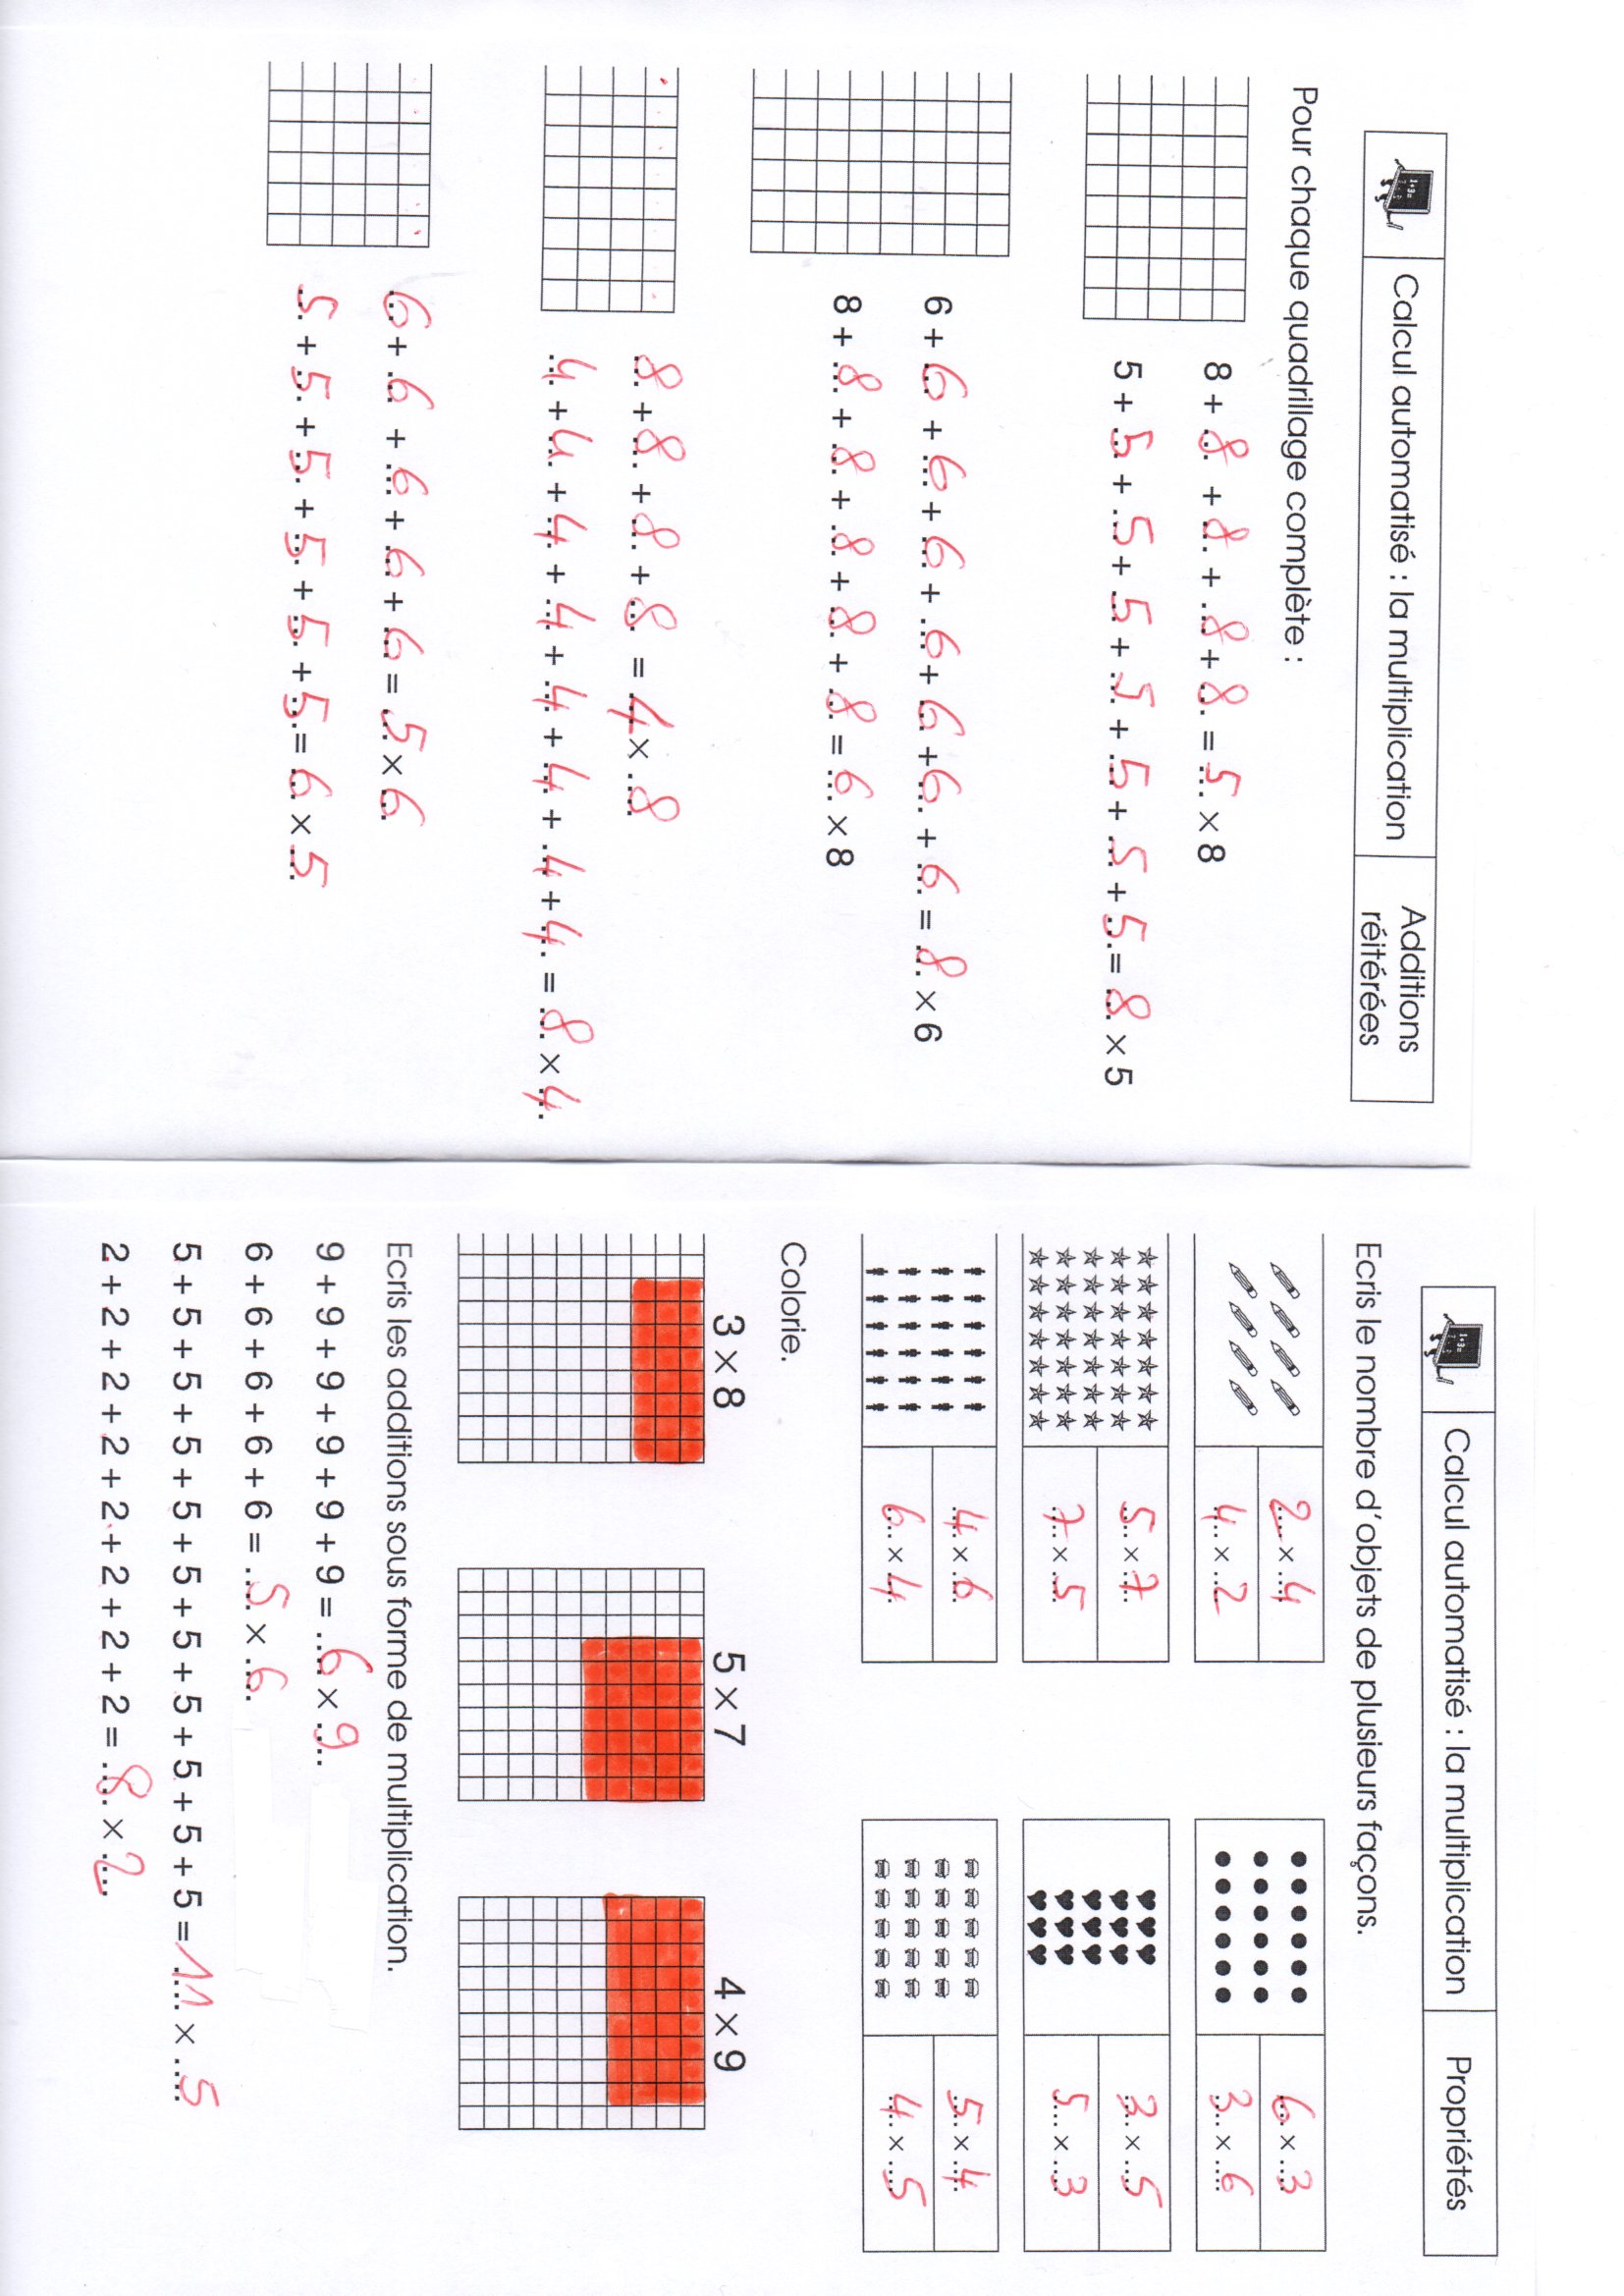 Calcul automatisé : la multiplication
Additions réitérées
Pour chaque quadrillage complète :
8 + 8 + 8 + 8 + 8 = 5 × 8
5 + 5 + 5 + 5 + 5 + 5 + 5 + 5 = 8 × 5
6 + 6 + 6 + 6 + 6 + 6 + 6 + 6 = 8 × 6
8 + 8 + 8 + 8 + 8 + 8 = 6 × 8
8 + 8 + 8 + 8 = 4 × 8
4 + 4 + 4 + 4 + 4 + 4 + 4 + 4 = 8 × 4
6 + 6 + 6 + 6 + 6 = 5 × 6
5 + 5 + 5 + 5 + 5 + 5 = 6 × 5
Calcul automatisé : la multiplication
Propriétés
Ecris le nombre d'objets de plusieurs façons.
2 × 4
4 × 2
6 × 3
3 × 6
5 × 7
7 × 5
3 × 5
5 × 3
4 × 6
6 × 4
5 × 4
4 × 5
Colorie.
3 × 8
5 × 7
4 × 9
Ecris les additions sous forme de multiplication.
9 + 9 + 9 + 9 + 9 + 9 = 6 × 9
6 + 6 + 6 + 6 + 6 = 5 × 6
5 + 5 + 5 + 5 + 5 + 5 + 5 + 5 + 5 + 5 + 5 = 11 × 5
2 + 2 + 2 + 2 + 2 + 2 + 2 + 2 = 8 × 2